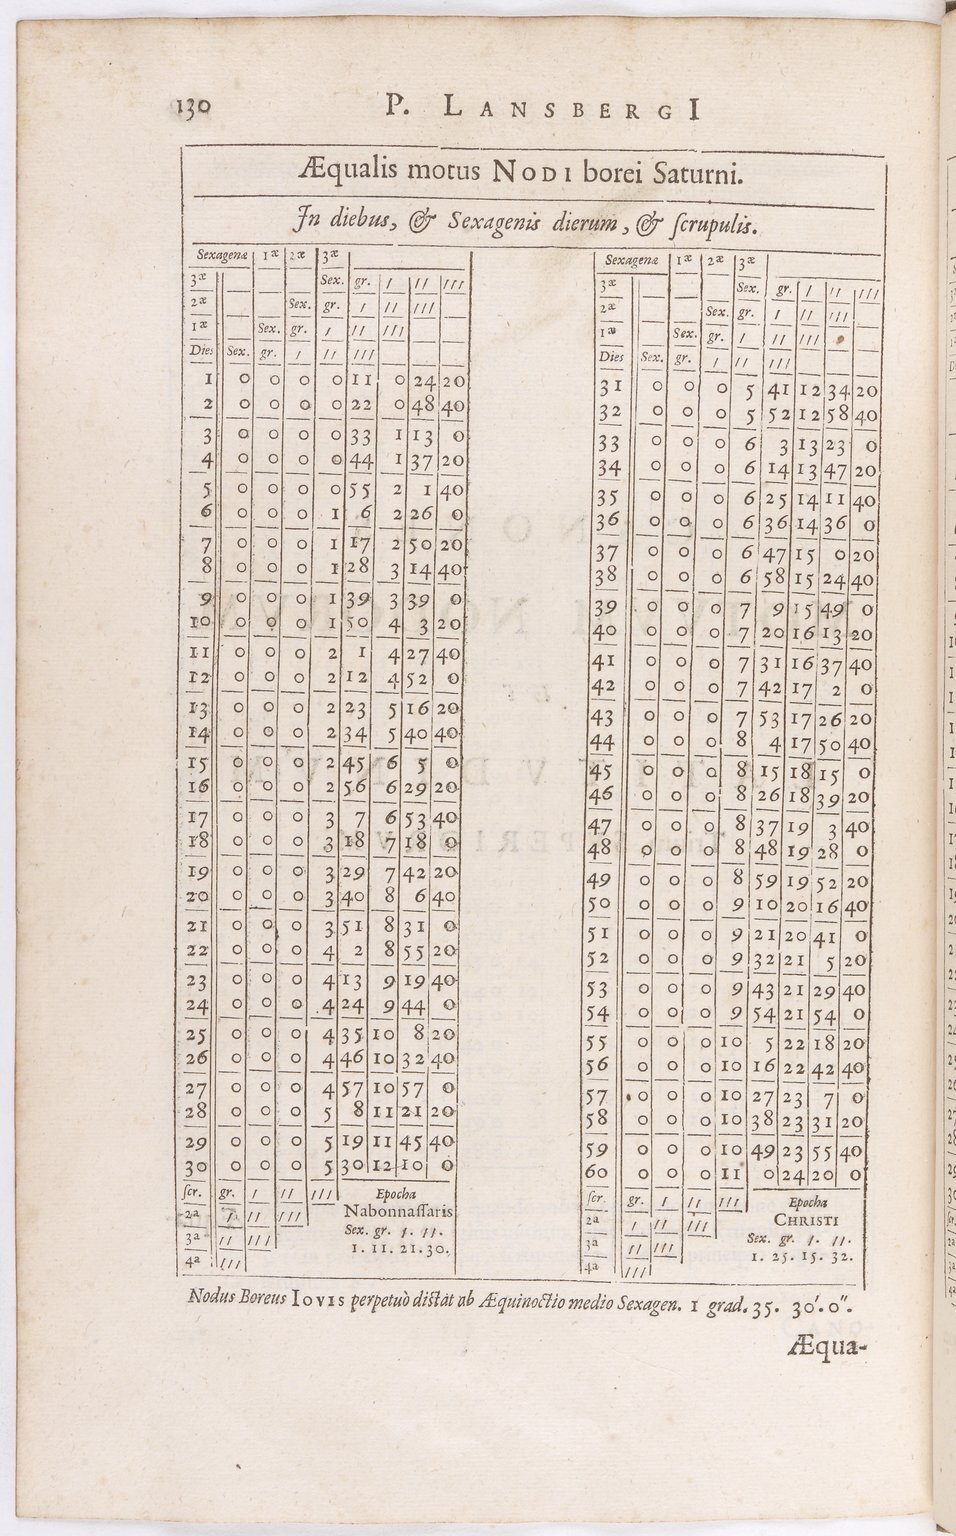 130
P. LANSBERGI
Æqualis motus NODI borei Saturni.
In diebus, & Sexagenis dierum, & ſcrupulis.
Sexagenæ 1æ 2æ 3æ
3æ Sex. gr. / // ///
2æ Sex. gr. / // ///
1æ Sex. gr. / // ///
Dies Sex. gr. / // ///
1 0 0 0 0 11 0 24 20
2 0 0 0 0 22 0 48 40
3 0 0 0 0 33 1 13 0
4 0 0 0 0 44 1 37 20
5 0 0 0 0 55 2 1 40
6 0 0 0 1 6 2 26 0
7 0 0 0 1 17 2 50 20
8 0 0 0 1 28 3 14 40
9 0 0 0 1 39 3 39 0
10 0 0 0 1 50 4 3 20
11 0 0 0 2 1 4 27 40
12 0 0 0 2 12 4 52 0
13 0 0 0 2 23 5 16 20
14 0 0 0 2 34 5 40 40
15 0 0 0 2 45 6 5 0
16 0 0 0 2 56 6 29 20
17 0 0 0 3 7 6 53 40
18 0 0 0 3 18 7 18 0
19 0 0 0 3 29 7 42 20
20 0 0 0 3 40 8 6 40
21 0 0 0 3 51 8 31 0
22 0 0 0 4 2 8 55 20
23 0 0 0 4 13 9 19 40
24 0 0 0 4 24 9 44 0
25 0 0 0 4 35 10 8 20
26 0 0 0 4 46 10 32 40
27 0 0 0 4 57 10 57 0
28 0 0 0 5 8 11 21 20
29 0 0 0 5 19 11 45 40
30 0 0 0 5 30 12 10 0
ſcr. gr. / // /// Epocha
2a / // /// Nabonnaſſaris
3a // /// Sex. gr. /. //.
4a /// 1. 11. 21. 30.
Sexagenæ 1æ 2æ 3æ
3æ Sex. gr. / // ///
2æ Sex. gr. / // ///
1æ Sex. gr. / // ///
Dies Sex. gr. / // ///
31 0 0 0 5 41 12 34 20
32 0 0 0 5 52 12 58 40
33 0 0 0 6 3 13 23 0
34 0 0 0 6 14 13 47 20
35 0 0 0 6 25 14 11 40
36 0 0 0 6 36 14 36 0
37 0 0 0 6 47 15 0 20
38 0 0 0 6 58 15 24 40
39 0 0 0 7 9 15 49 0
40 0 0 0 7 20 16 13 20
41 0 0 0 7 31 16 37 40
42 0 0 0 7 42 17 2 0
43 0 0 0 7 53 17 26 20
44 0 0 0 8 4 17 50 40
45 0 0 0 8 15 18 15 0
46 0 0 0 8 26 18 39 20
47 0 0 0 8 37 19 3 40
48 0 0 0 8 48 19 28 0
49 0 0 0 8 59 19 52 20
50 0 0 0 9 10 20 16 40
51 0 0 0 9 21 20 41 0
52 0 0 0 9 32 21 5 20
53 0 0 0 9 43 21 29 40
54 0 0 0 9 54 21 54 0
55 0 0 0 10 5 22 18 20
56 0 0 0 10 16 22 42 40
57 0 0 0 10 27 23 7 0
58 0 0 0 10 38 23 31 20
59 0 0 0 10 49 23 55 40
60 0 0 0 11 0 24 20 0
ſcr. gr. / // /// Epocha
2a / // /// CHRISTI
3a // /// Sex. gr. /. //.
4a /// 1. 25. 15. 32.
Nodus Boreus IOVIS perpetuò diſtat ab Æquinoctio medio Sexagen. 1 grad. 35. 30'. 0''.
Æqua-